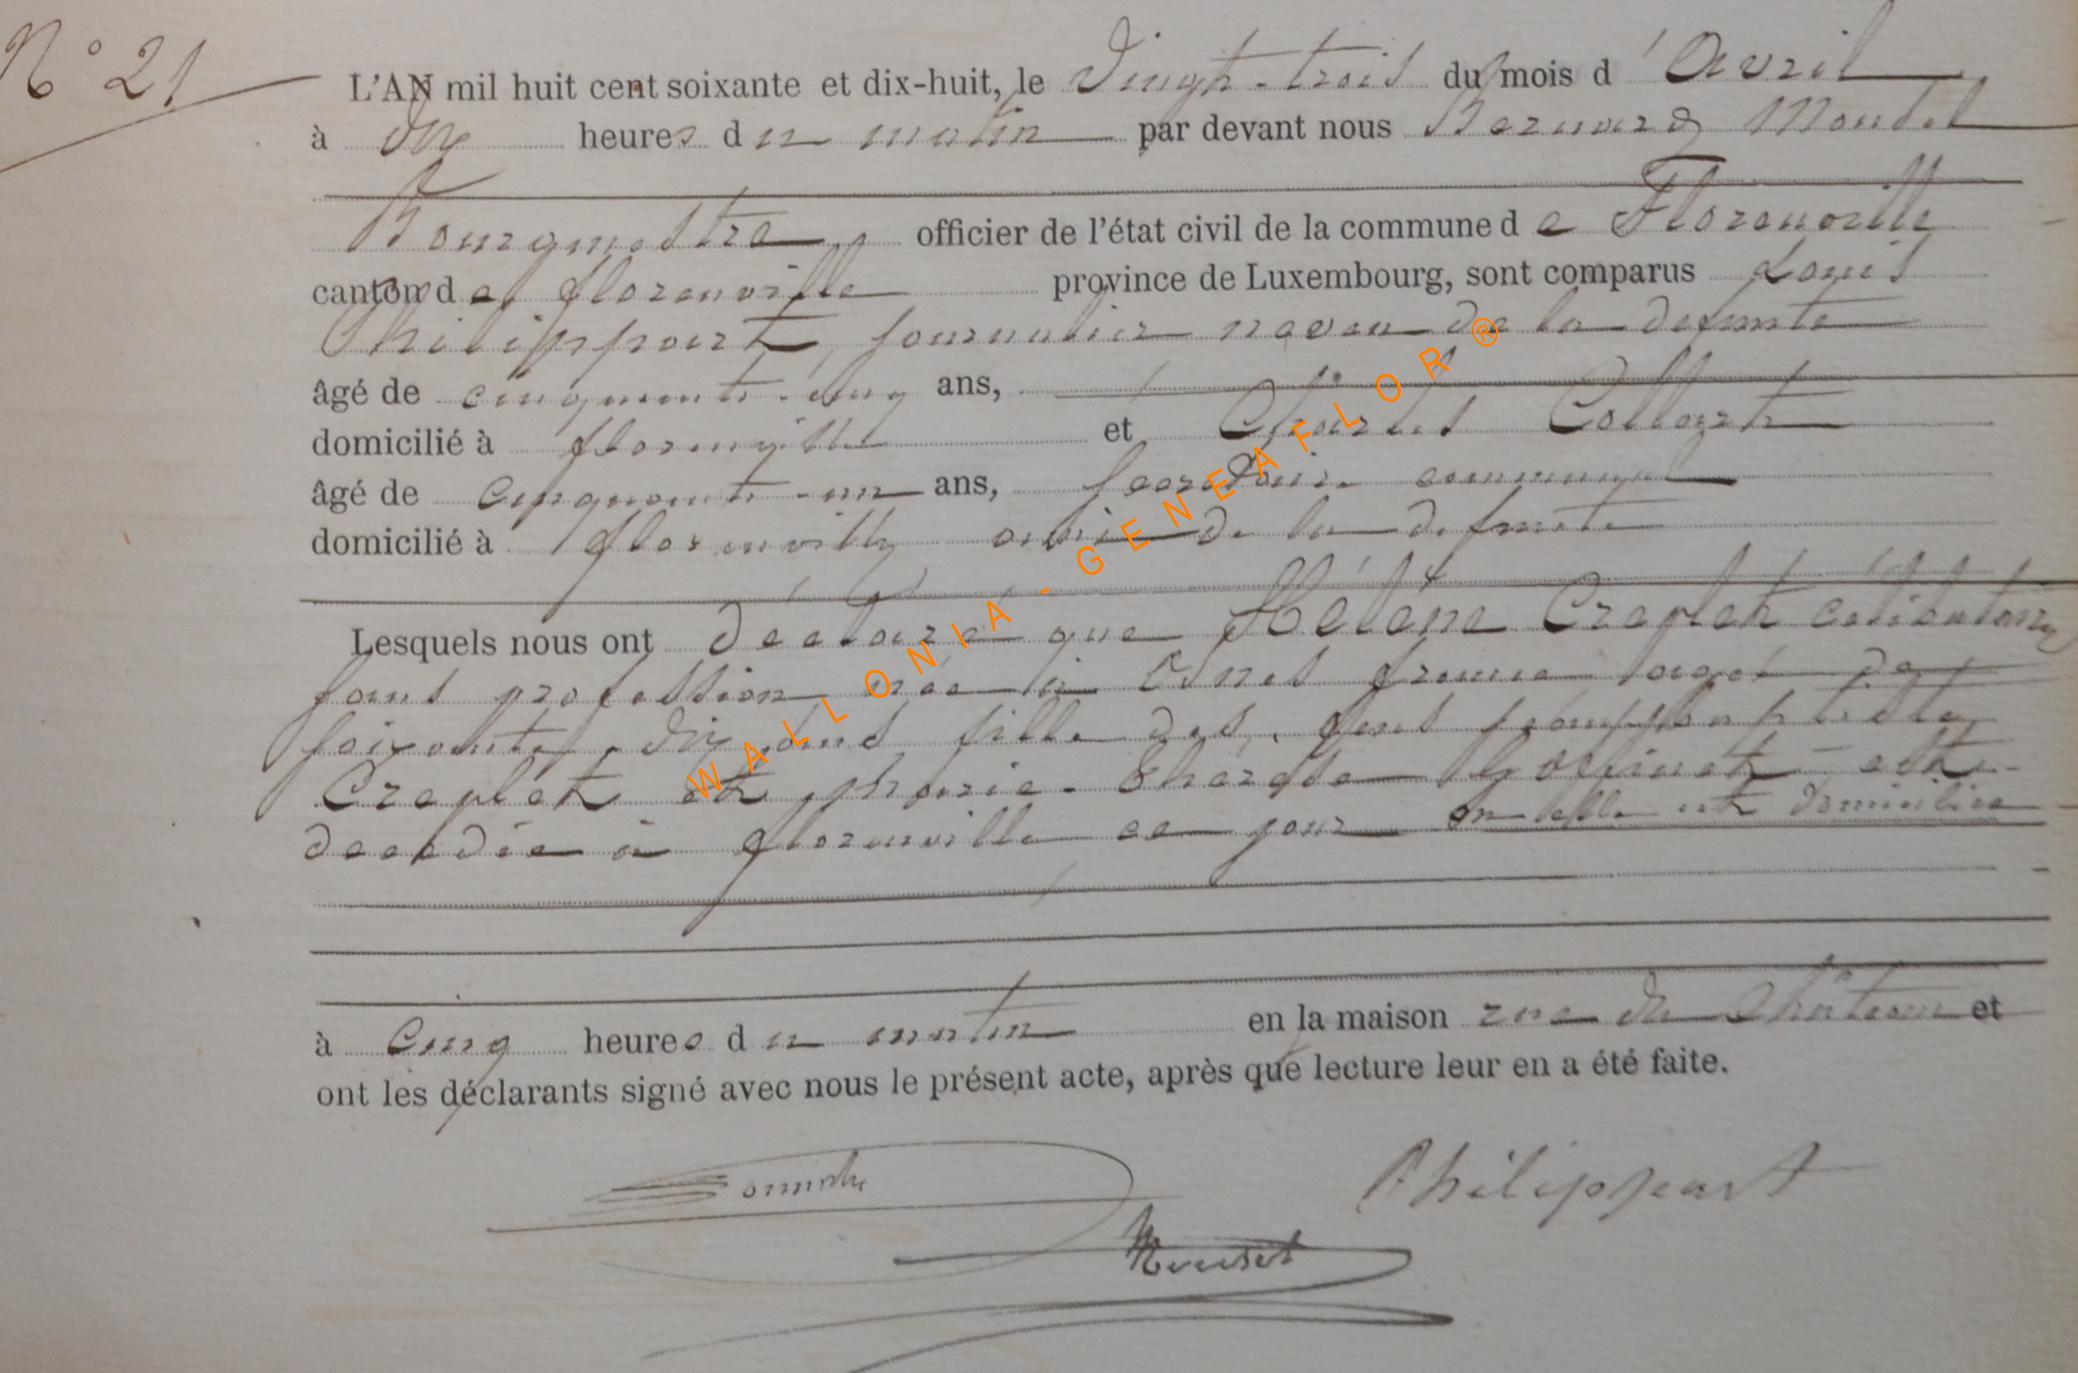 N° 21
L'AN mil huit cent soixante et dix-huit, le Vingt-trois du mois d'Avril
à dix heures du matin par devant nous Bernard
Bourgmestre officier de l'état civil de la commune de Florenville
canton de florenville province de Luxembourg, sont comparus Louis
Philippart, journalier neveu de la defunte
âgé de cinquante-cinq ans,
domicilié à florenville et Charles Collart
âgé de cinquante-un ans, secretaire communal
domicilié à florenville ami de la defunte
Lesquels nous ont déclaré que Hélène Craplet celibataire
sans profession née à Osnes france agée de
soixante-dix ans fille des
Craplet et Marie-Thérèse est
decedée à florenville ce jour où elle est domiciliée
à cinq heures du matin en la maison rue du Château et
ont les déclarants signé avec nous le présent acte, après que lecture leur en a été faite.
Philippart
WALLONIA-GENEAFLOR®